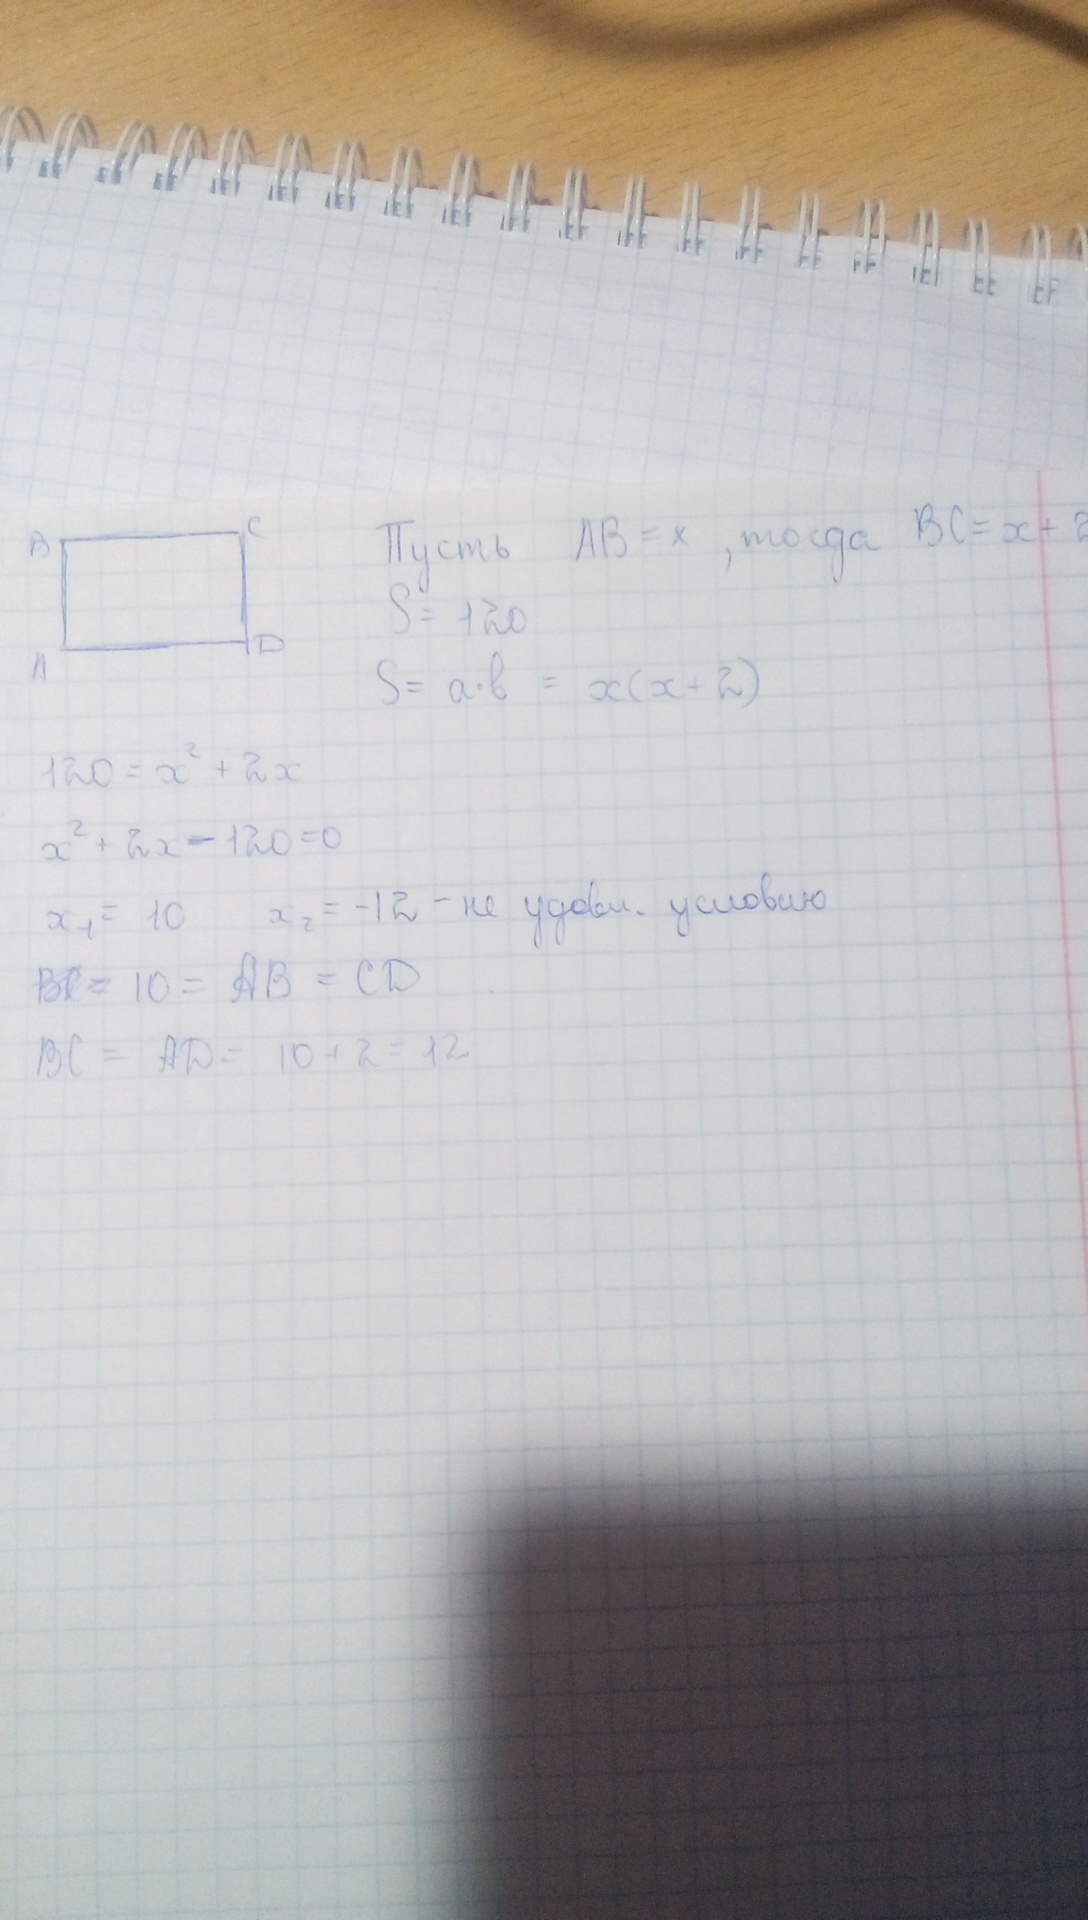 B C
A D
Пусть AB = x , тогда BC = x + 2
S = 120
S = a·b = x(x + 2)
120 = x² + 2x
x² + 2x - 120 = 0
x₁ = 10 x₂ = -12 - не удовл. условию
= 10 = AB = CD
BC = AD = 10 + 2 = 12